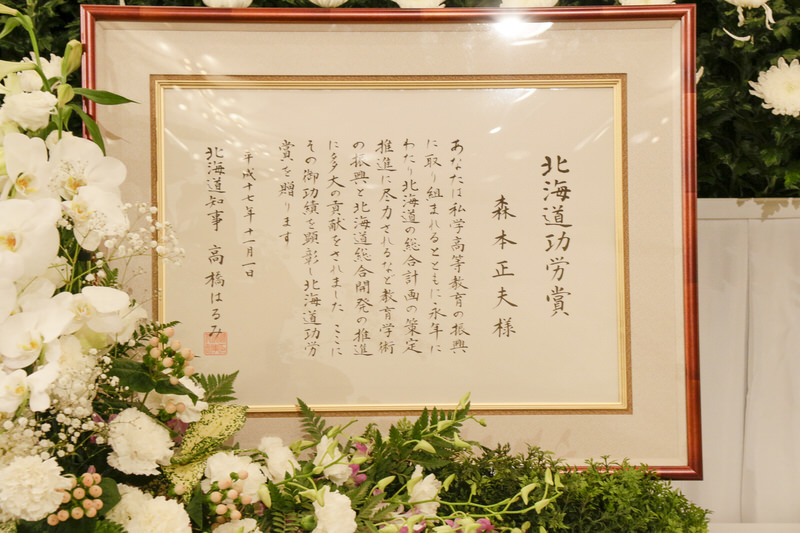 北海道功労賞
森本正夫様
あなたは私学高等教育の振興
に取り組まれるとともに永年に
わたり北海道の総合計画の策定
推進に尽力されるなど教育学術
の振興と北海道総合開発の推進
に多大の貢献をされました ここに
その御功績を顕彰し北海道功労
賞を贈ります
平成十七年十一月一日
北海道知事 高橋はるみ